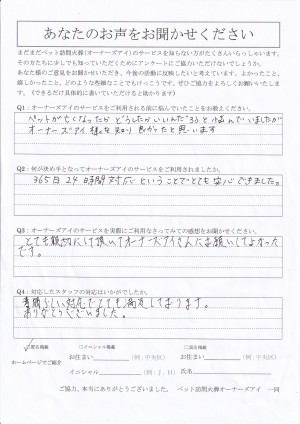 あなたのお声をお聞かせください
まだまだペット訪問火葬(オーナーズアイ)のサービスを知らない方がたくさんいらっしゃいます。
その方たちに少しでも知っていただくためにアンケートにご協力いただけないでしょうか。
あなた様のご意見をお聞かせいただき、今後の活動に反映したいと考えています。よかったこと、
嬉しかったこと、どのような些細なことなどでもけっこうです。ぜひご協力をよろしくお願いいたしま
す。（できるだけ具体的に書いていただけると助かります）
Q1：オーナーズアイのサービスをご利用される前に悩んでいたことをお教えください。
ペットが亡くなったか どうしたか いいんだろうと悩んでいましたが
オーナーズアイ様を知り 良かったと思います
Q2：何が決め手となってオーナーズアイのサービスをご利用されましたか。
365日24時間対応ということでとても安心できました。
Q3：オーナーズアイのサービスを実際にご利用なさってみての感想をお聞かせください。
とても親切にして頂いてオーナーズアイさんにお願いしてよかった
です。
Q4：対応したスタッフの対応はいかがでしたか。
素晴らしい対応でとても満足しております。
ありがとうございました。
□匿名掲載 □イニシャル掲載 □実名掲載
ホームページでご紹介
お住まい （例：中央区） お住まい （例：中央区）
イニシャル （例：J．H） 氏名
ご協力、本当にありがとうございました。 ペット訪問火葬オーナーズアイ 一同